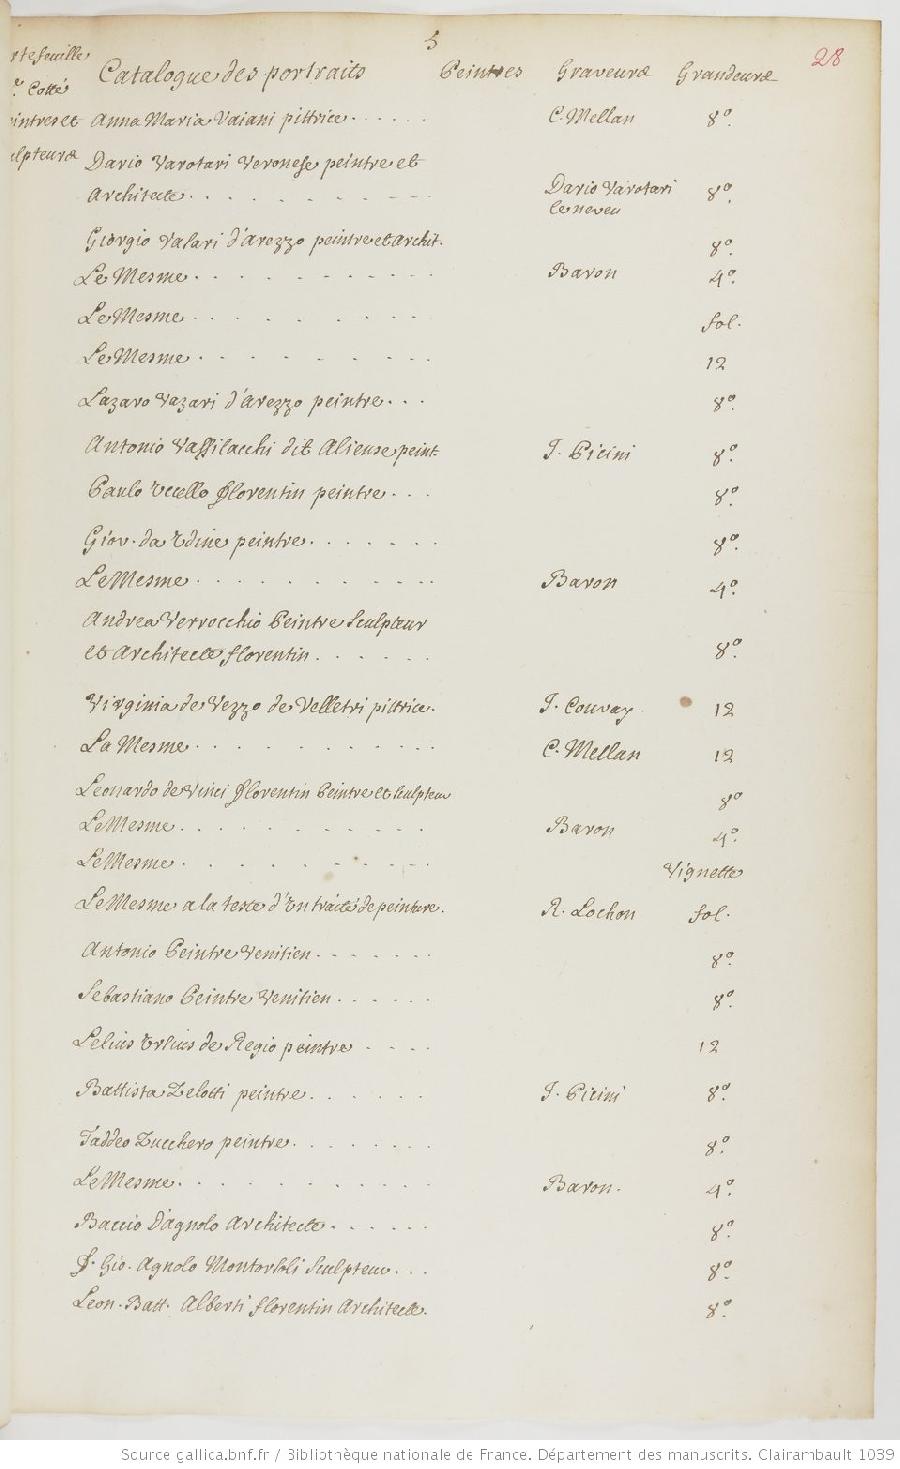 5
28
Catalogue des portraits Peintres Graveurs Grandeurs
Cotté
Anna Maria Vaiani pittrice...... C. Mellan 8º.
Dario Varotari Veronese peintre et
Architecte......... Dario Varotari 8º.
le neveu
Giorgio Vasari d'Arezzo peintre et archit. 8º.
Le Mesme......... Baron 4º.
Le Mesme......... fol.
Le Mesme......... 12
Lazaro Vazari d'Arezzo peintre... 8º.
Antonio Vassilacchi dit Aliense peint J. Picini 8º.
Paulo Vccello florentin peintre... 8º.
Giov. da Vdine peintre....... 8º.
Le Mesme......... Baron 4º.
Andrea Verrocchio Peintre Sculpteur
et Architecte florentin...... 8º.
Virginia de Vezzo de Velletri pittrice. J. Couvay 12
La Mesme......... C. Mellan 12
Leonardo de Vinci florentin Peintre et sculpteur 8º
Le Mesme......... Baron 4º.
Le Mesme......... Vignette
Le Mesme a la teste d'Vn traité de peinture. R. Lochon fol.
Antonio Peintre Venitien....... 8º.
Sebastiano Peintre Venitien...... 8º.
Lelius Orsius de Regio peintre.... 12
Battista Zelotti peintre...... J. Picini 8º.
Taddeo Zucchero peintre....... 8º.
Le Mesme......... Baron. 4º.
Baccio D'agnolo Architecte...... 8º.
f. Gio. Agnolo Montorsoli Sculpteur... 8º.
Leon. Batt. Alberti florentin Architecte. 8º.
Source gallica.bnf.fr / Bibliothèque nationale de France. Département des manuscrits. Clairambault 1039